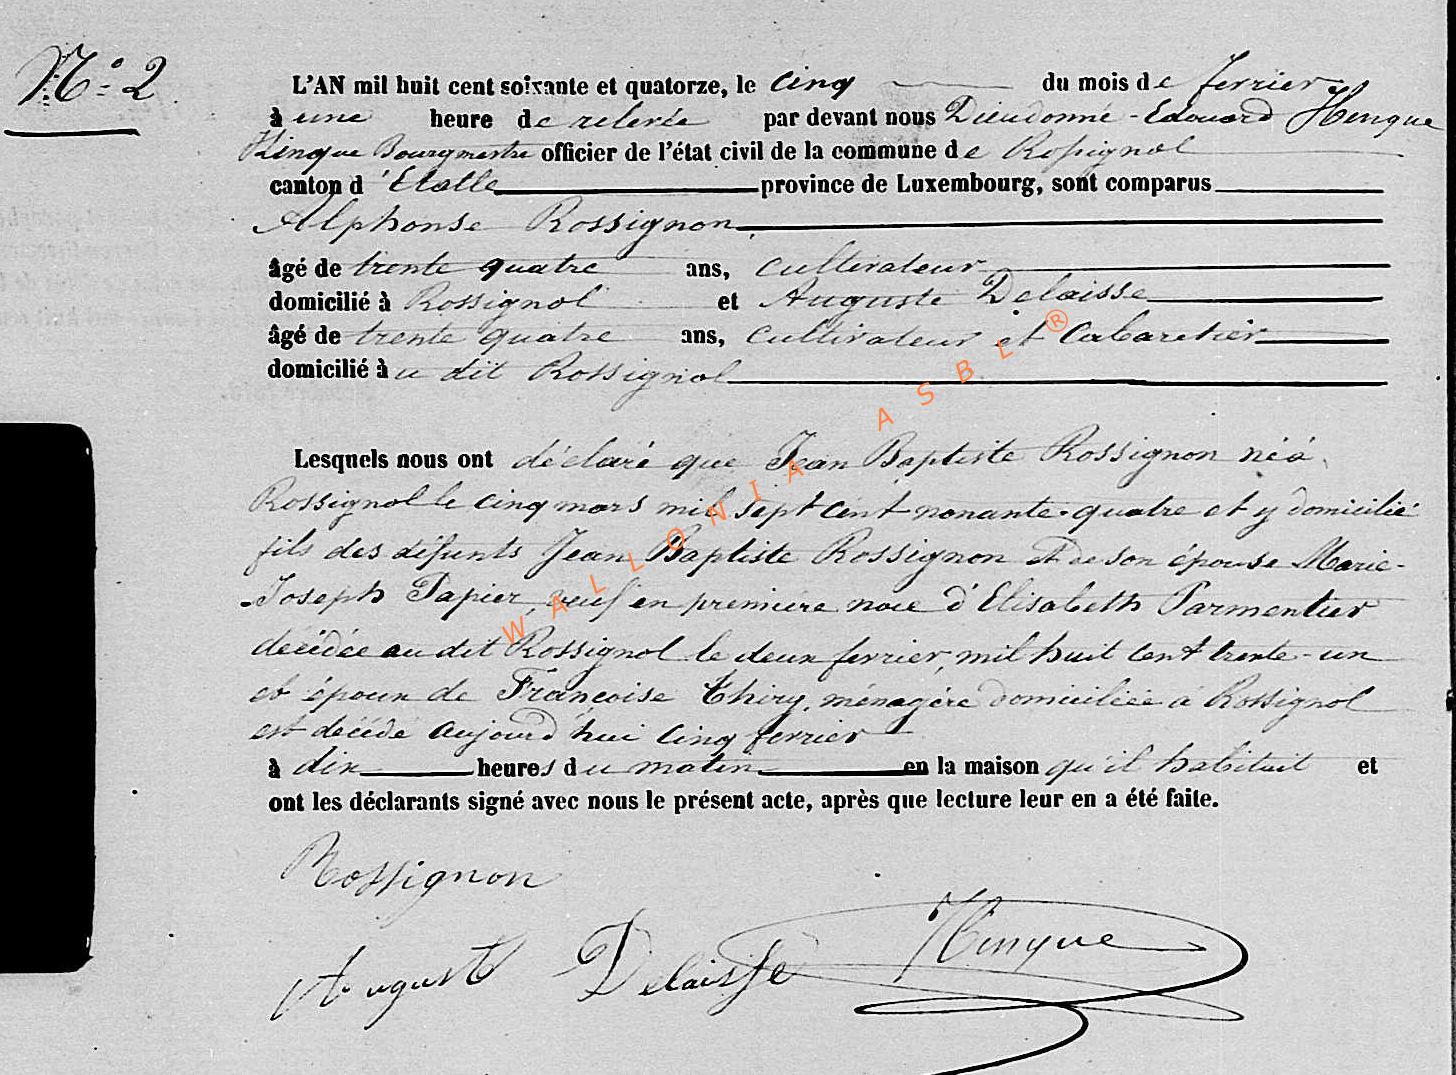 N° 2
L'AN mil huit cent soixante et quatorze, le cinq du mois de fevrier
à une heure de relevée par devant nous Dieudonné-Edouard Hinque
Hinque Bourgmestre officier de l'état civil de la commune de Rossignol
canton d'Etalle province de Luxembourg, sont comparus
Alphonse Rossignon
âgé de trente quatre ans, cultivateur
domicilié à Rossignol et Auguste Delaisse
âgé de trente quatre ans, cultivateur et Cabaretier
domicilié à u dit Rossignol
Lesquels nous ont déclaré que Jean Baptiste Rossignon né à
Rossignol le cinq mars mil sept cent nonante-quatre et y domicilié
fils des défunts Jean Baptiste Rossignon et de son épouse Marie-
-Joseph Papier, veuf en première noce d'Elisabeth Parmentier
décédée au dit Rossignol le deux fevrier, mil huit cent trente-un
et époux de Françoise Thiry, ménagère domiciliée à Rossignol
est décédé aujourd'hui cinq fevrier
à dix heures du matin en la maison qu'il habitait et
ont les déclarants signé avec nous le présent acte, après que lecture leur en a été faite.
Rossignon
August Delaisse Hinque
WALLONIA ASBL ®